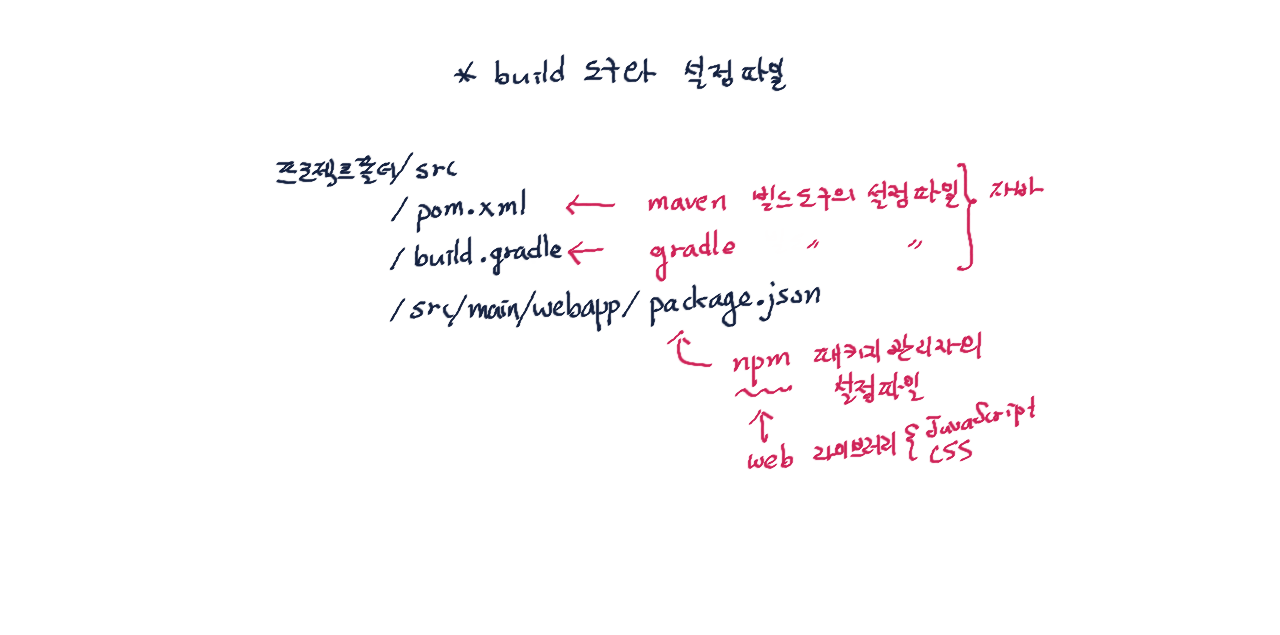 * build 도구와 설정파일
프로젝트폴더/src
/pom.xml ← maven 빌드도구의 설정파일 } 자바
/build.gradle ← gradle 〃 〃
/src/main/webapp/package.json
npm 패키지 관리자의
설정파일
web 라이브러리 { JavaScript
CSS